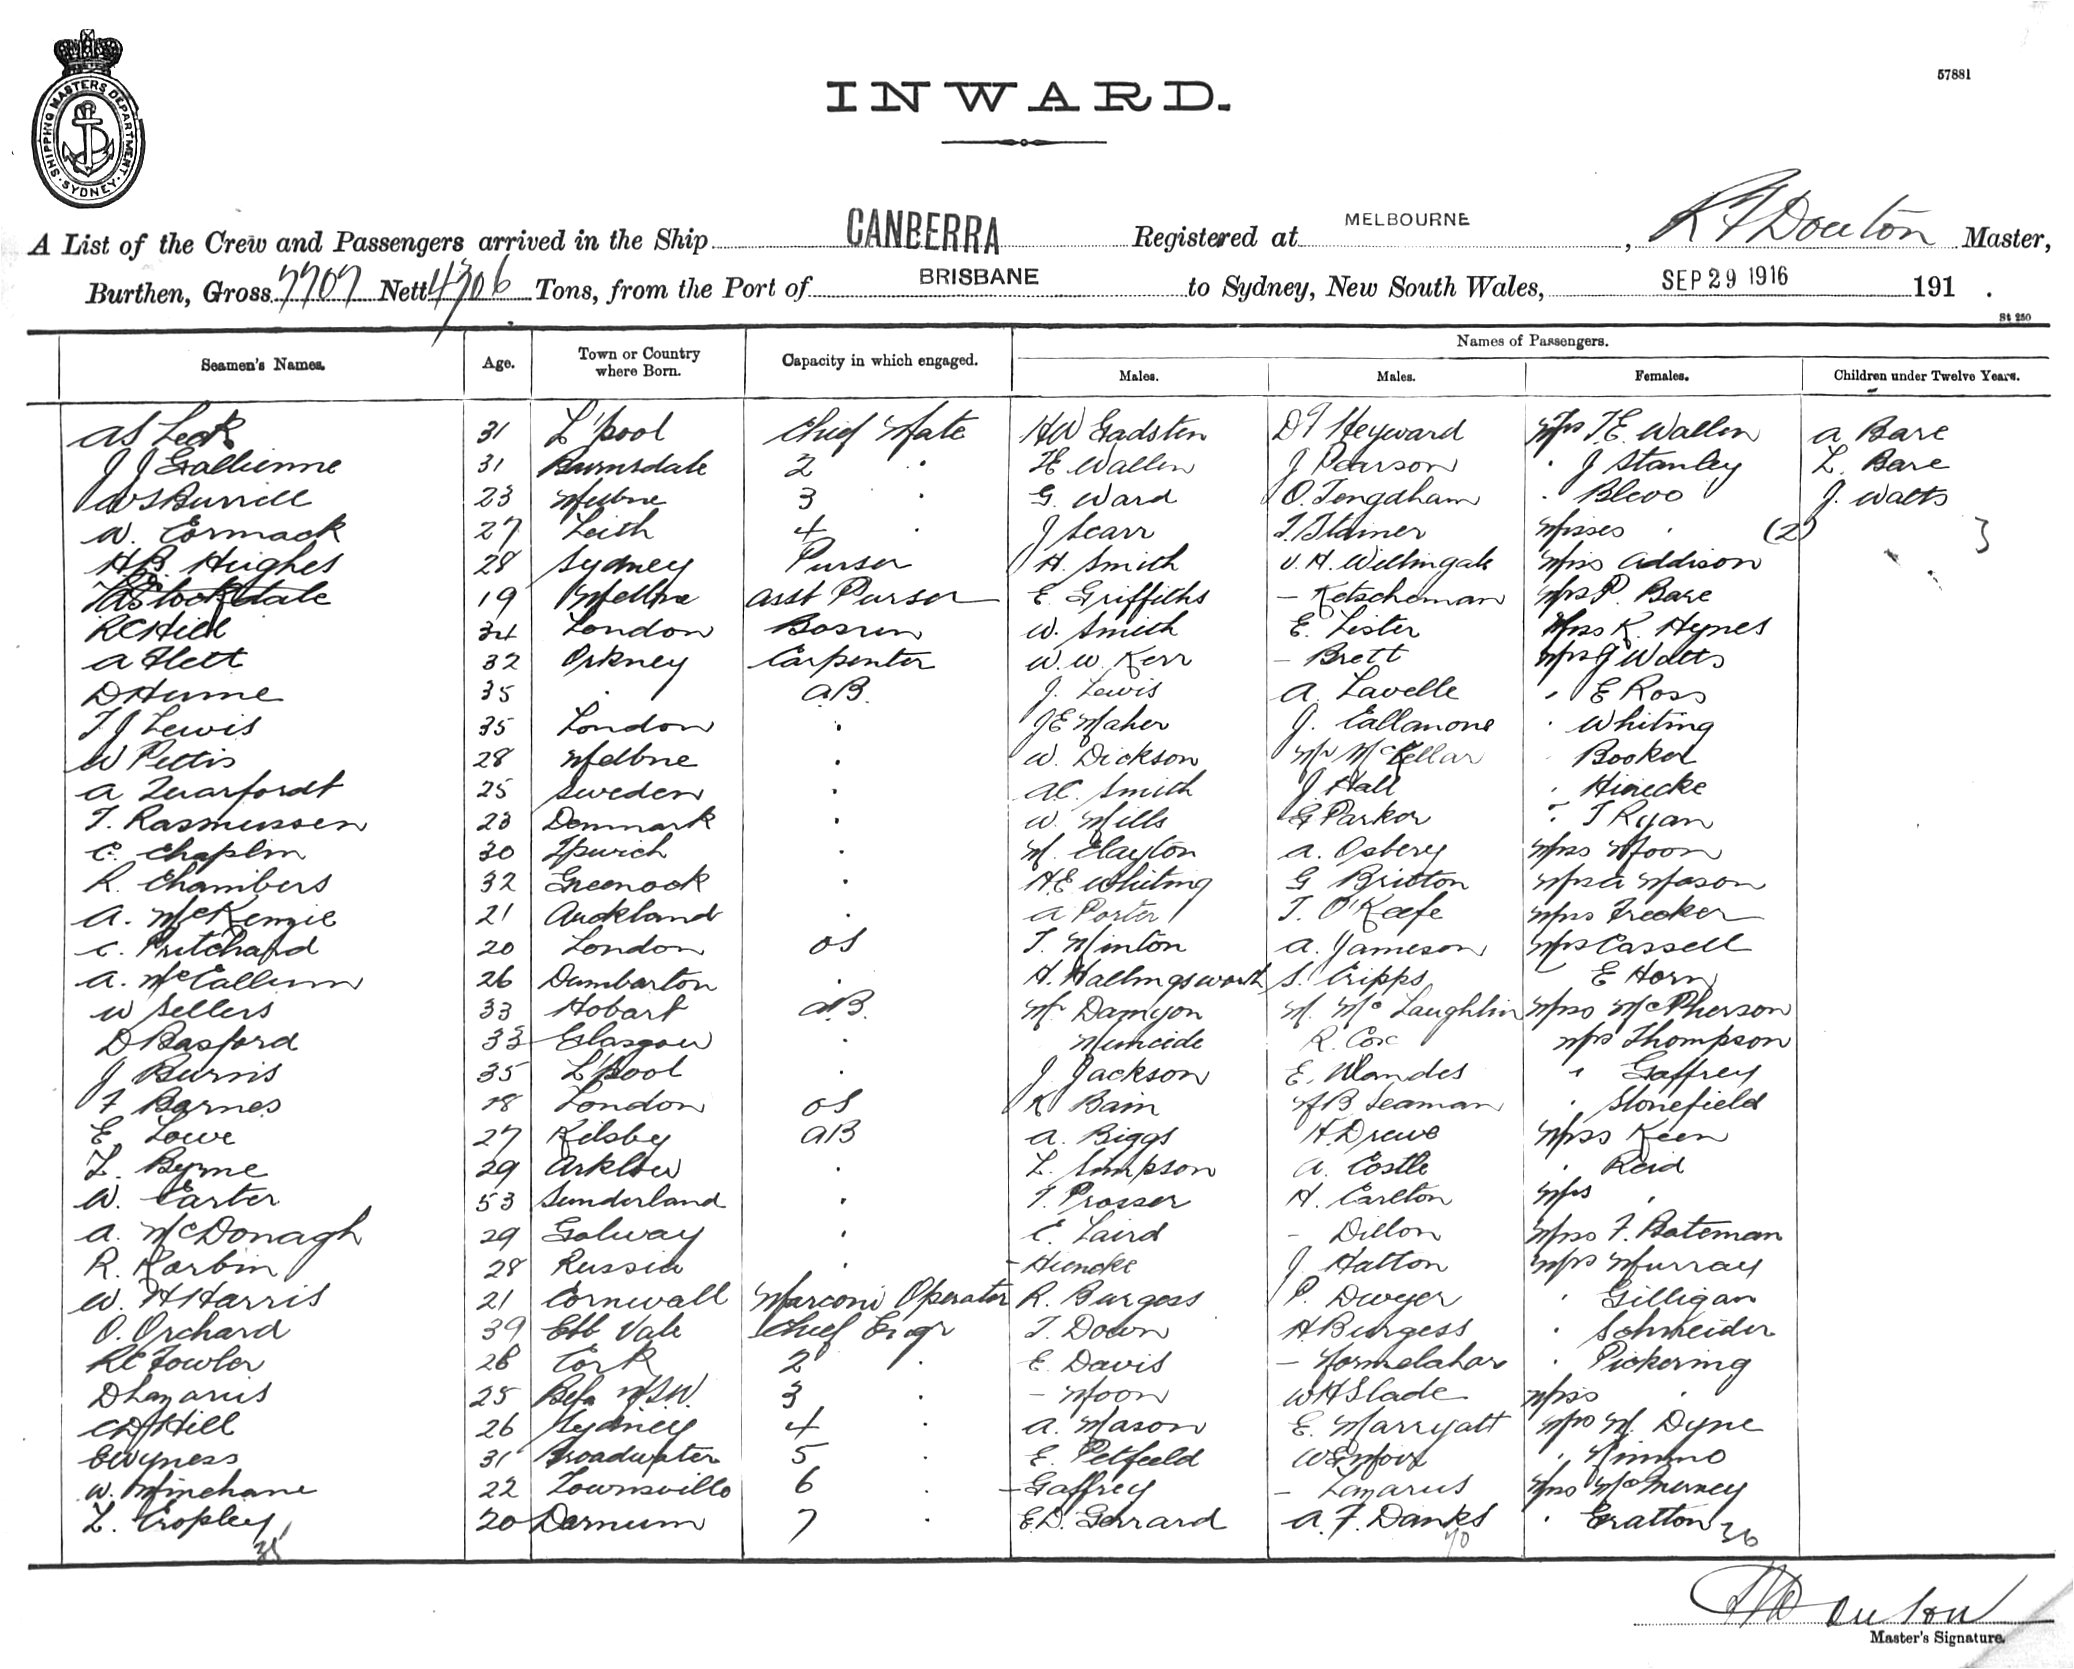 57881
SHIPPING MASTERS DEPARTMENT
SYDNEY
INWARD.
A List of the Crew and Passengers arrived in the Ship CANBERRA Registered at MELBOURNE, R F Douton Master,
Burthen, Gross 7707 Nett 4706 Tons, from the Port of BRISBANE to Sydney, New South Wales, SEP 29 1916 191 .
St 250
Seamen's Names. Age. Town or Country where Born. Capacity in which engaged. Names of Passengers.
Males. Males. Females. Children under Twelve Years.
A S Leck 31 L'pool Chief Mate HW Gadsten D F Heyward Mrs T.E. Wallen A Bare
J J Gallienne 31 Burnsdale 2 " H. Wallen J Pearson " J Stanley L. Bare
W S Burrell 23 Melbne 3 " G. Ward O. Tengdham " Blevo J. Watts
W. Cormack 27 Leith 4 " J Scarr T. Stainer Misses " (2) 3
H.B. Hughes 28 Sydney Purser H. Smith V. H. Willingale Miss Addison
Stockdale 19 Melbne Asst Purser E. Griffiths – Ketscheman Mrs P. Bare
R C Hill 34 London Bosun W. Smith E. Lister Miss K. Hynes
A Flett 32 Orkney Carpenter W. W. Kerr – Brett Mrs J Watts
D Hume 35 " AB. J. Lewis A. Lavelle " E Ross
T J Lewis 35 London " J E Maher J. Callanone " Whiting
W Pettis 28 Melbne " W. Dickson Mr McKellar " Booker
A Quarfordt 25 Sweden " A.C. Smith J Hall " Hinecke
T. Rasmussen 23 Denmark " W. Mills G Parker " T Ryan
C. Chaplin 30 Ipswich " M. Clayton A. Osbery Miss Moon
R. Chambers 32 Greenock " H.E Whiting G Britton Miss A Mason
A. McKenzie 21 Auckland " A Porter T. O'Keefe Miss Frecker
C. Pritchard 20 London OS T. Minton A. Jameson Mrs Cassell
A. McCallum 26 Dumbarton " H. Hallingsworth S. Cripps " E Horn
W Sellers 33 Hobart AB. M. Damyon M. McLaughlin Miss McPherson
D Basford 33 Glasgow " R. Cox Mrs Thompson
J Burns 35 L'pool " J. Jackson E. Wandes " Gaffrey
F Barnes 18 London OS K Bain B Seaman " Stonefield
E. Lowe 27 Kilsby AB A. Biggs H. Drewe Miss Keen
L. Byrne 29 Arklow " L. Simpson A. Costle " Reid
W. Carter 53 Sunderland " T Prosser H. Carlton Mrs "
A. McDonagh 29 Galway " E. Laird – Dillon Miss F. Bateman
R. Karbin 28 Russia " – Hinecke J Halton Mrs Murray
W. H Harris 21 Cornwall Marconi Operator R. Burgess P. Dwyer " Gilligan
O. Orchard 39 Ebb Vale Chief Engr T. Down H Burgess " Schneider
R C Fowler 28 Cork 2 " E. Davis – " Pickering
D Lazarus 25 Bega NSW. 3 " – Moon W H Slade Miss "
C D Hill 26 Sydney 4 " A. Mason E. Marryatt Mrs M. Dyne
E Wyness 31 Broadwater 5 " E. Petfield W E Moir " Nimmo
W. Minehane 22 Townsville 6 " – Gaffrey – Lazarus Miss McMurney
L. Cropley 20 Darnum 7 " E.D. Gerrard A. F. Danks " Gratton
35 70 36
R F Douton
Master's Signature.